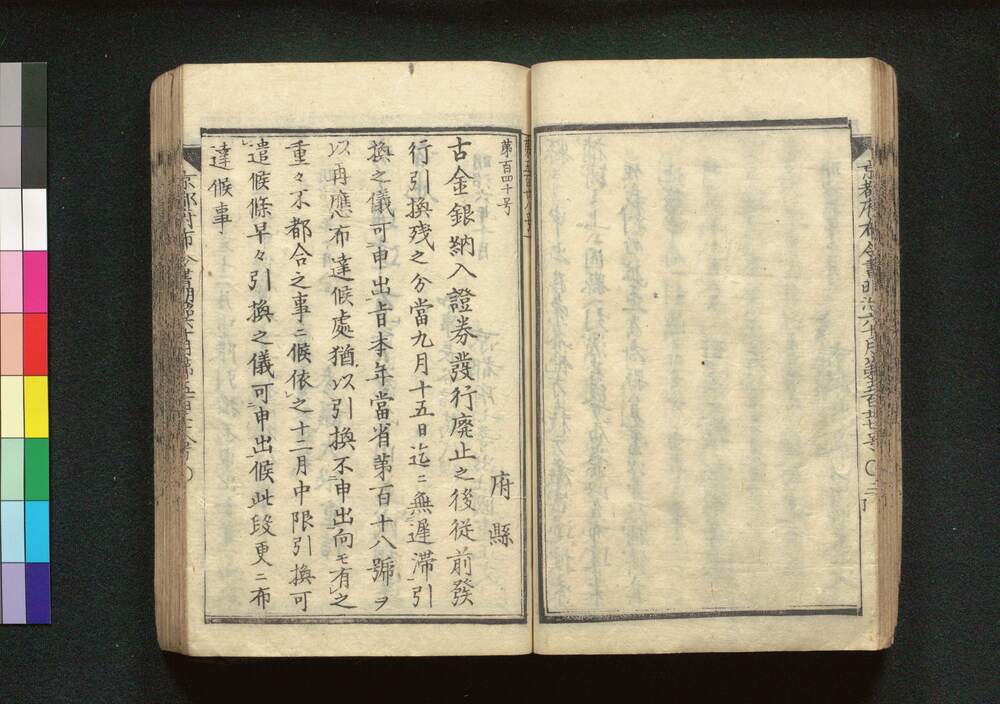 京都府布令書明治六十月第五百廿七号〇二
第百四十号
府縣
古金銀納入證券發行廃止之後従前發
行引換残之分當九月十五日迄ニ無遅滞引
換之儀可申出旨本年當省第百十八號ヲ
以再應布達候處猶以引換不申出向モ有之
重々不都合之事ニ候依之十二月中限引換可
遣候條早々引換之儀可申出候此段更ニ布
達候事